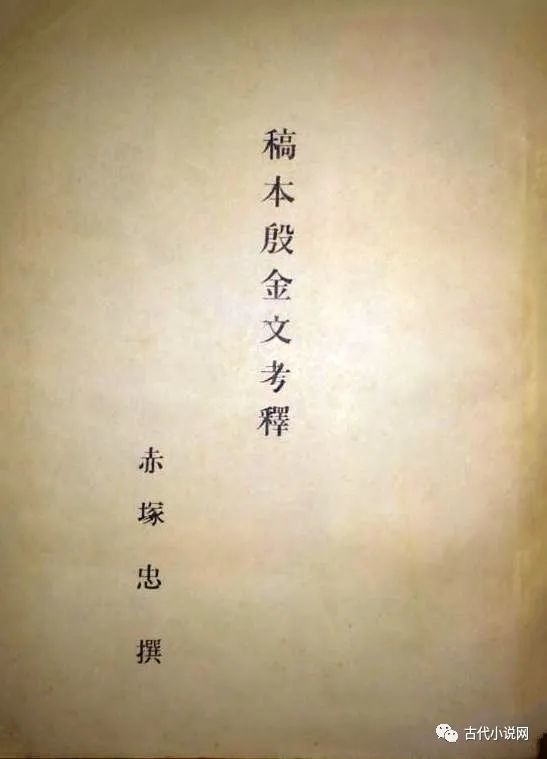 稿本殷金文考釋
赤塚忠撰
古代小说网